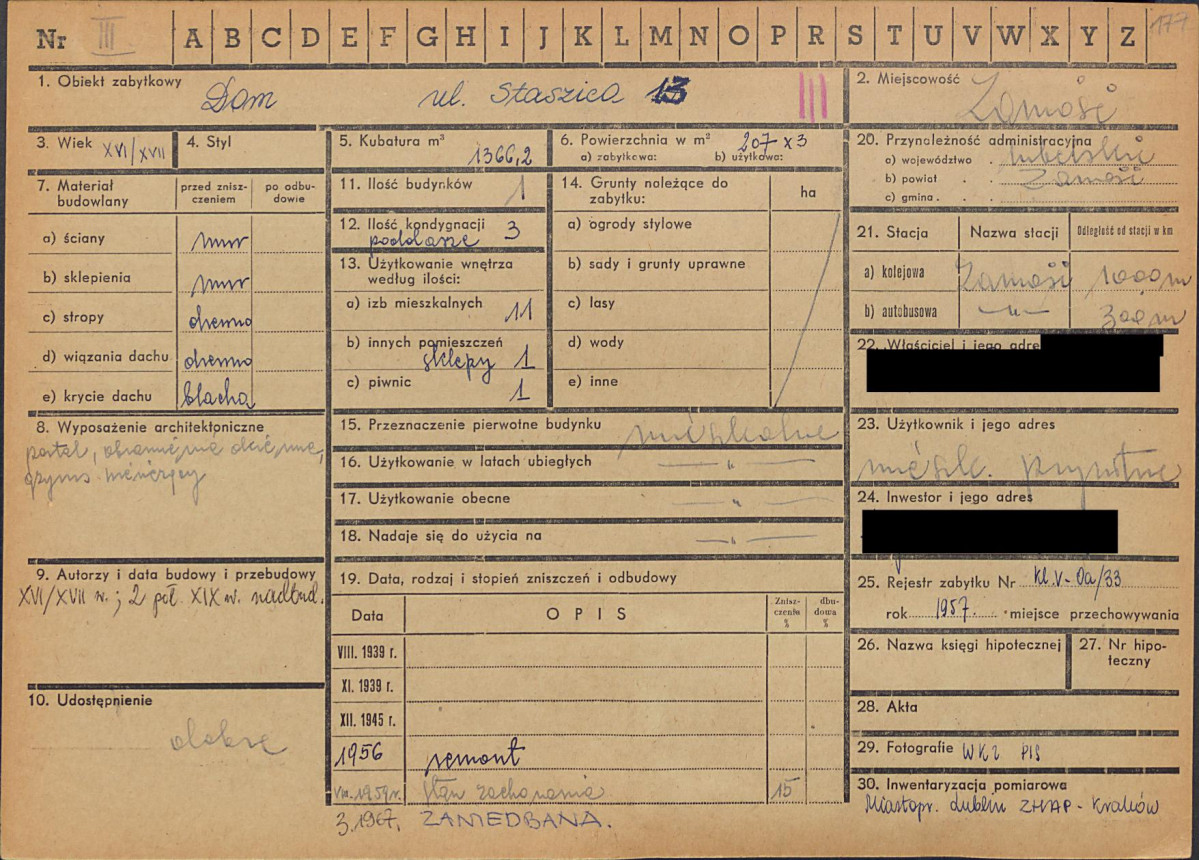 Nr III A B C D E F G H I J K L M N O P R S T U V W X Y Z 177
1. Obiekt zabytkowy Dom ul. Staszica 13 III
2. Miejscowość Zamość
3. Wiek XVI/XVII
4. Styl
5. Kubatura m³ 1366,2
6. Powierzchnia w m² 207 x 3
a) zabytkowa: b) użytkowa:
20. Przynależność administracyjna
a) województwo . lubelskie
b) powiat . . Zamość
c) gmina . . .
7. Materiał budowlany
przed zniszczeniem
po odbudowie
a) ściany mur
b) sklepienia mur
c) stropy drewno
d) wiązania dachu drewno
e) krycie dachu blacha
11. Ilość budynków 1
12. Ilość kondygnacji 3
poddasze
13. Użytkowanie wnętrza
według ilości:
a) izb mieszkalnych 11
b) innych pomieszczeń
sklepy 1
c) piwnic 1
14. Grunty należące do
zabytku:
ha
a) ogrody stylowe
b) sady i grunty uprawne
c) lasy
d) wody
e) inne
21. Stacja Nazwa stacji Odległość od stacji w km
a) kolejowa Zamość 1000 m
b) autobusowa -"- 300 m
22. Właściciel i jego adre
8. Wyposażenie architektoniczne
portal,
gzyms
15. Przeznaczenie pierwotne budynku mieszkalne
16. Użytkowanie w latach ubiegłych -"-
17. Użytkowanie obecne -"-
18. Nadaje się do użycia na -"-
23. Użytkownik i jego adres
mieszk. prywatne
24. Inwestor i jego adres
9. Autorzy i data budowy i przebudowy
XVI/XVII w.; 2 poł. XIX w. nadbud.
10. Udostępnienie
dobre
19. Data, rodzaj i stopień zniszczeń i odbudowy
Data OPIS Zniszczenia % dbudowa %
VIII. 1939 r.
XI. 1939 r.
XII. 1945 r.
1956 remont
VIII. 1959 r. stan zachowania 15
3.1967. ZANIEDBANA.
25. Rejestr zabytku Nr Kl.V-0a/33
rok 1957. miejsce przechowywania
26. Nazwa księgi hipotecznej
27. Nr hipoteczny
28. Akta
29. Fotografie WKZ PIS
30. Inwentaryzacja pomiarowa
Miastopr. Lublin ZHAP - Kraków